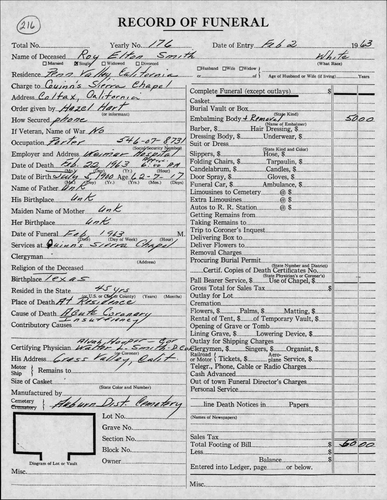 216
RECORD OF FUNERAL
Total No. Yearly No. 176 Date of Entry Feb 2 1963
Name of Deceased Roy Elton Smith White
Married Single Widowed Divorced Husband Wife Widow (What Race)
Residence Penn Valley, California of Age of Husband or Wife (if living) Years
Charge to Quinn's Sierra Chapel
Address Colfax, California
Order given by Hazel Hart
(or informant)
How Secured phone
If Veteran, Name of War No
Occupation Porter 546-07-8731
Employer and Address Weimar Hospital
Date of Death 1963
Date of Birth July 5 1900 Age 62-7-17
(Yrs.) (Mos.) (Days)
Name of Father Unk
His Birthplace Unk
Maiden Name of Mother Unk
Her Birthplace Unk
Date of Funeral Feb, 1963 M.
(Date) (Day of Week) (Hour)
Services at Quinn's Sierra Chapel
Clergyman
(Address)
Religion of the Deceased
Birthplace Texas
Resided in the State 45 yrs
(U.S. or Other County) (Years) (Months)
Place of Death At Residence
Cause of Death Acute Coronary
Insufficiency
Contributory Causes
Certifying Physician Walter L. Smith
His Address Grass Valley, Calif
Motor Ship } Remains to
Size of Casket
(State Color and Number)
Manufactured by
Cemetery Crematory } Auburn Dist. Cemetery
Lot No.
Grave No.
Section No.
Block No.
Owner
Diagram of Lot or Vault
Misc.
Complete Funeral (except outlays) $
Casket
Burial Vault or Box
(State Kind)
Embalming Body + Removal 50 00
(Name of Embalmer)
Barber, $ Hair Dressing, $
Dressing Body, $ Underwear, $
Suit or Dress
(State Kind and Color)
Slippers, $ Hose, $
Folding Chairs, $ Tarpaulin, $
Candelabrum, $ Candles, $
Door Spray, $ Gloves, $
Funeral Car, $ Ambulance, $
Limousines to Cemetery @ $
Extra Limousines @ $
Autos to R. R. Station @ $
Getting Remains from
Taking Remains to
Trip to Coroner's Inquest
Delivering Box to
Deliver Flowers to
Removal Charges
Procuring Burial Permit
(State Number and District)
Certif. Copies of Death Certificates No.
(State Physician's or Coroner's)
Pall Bearer Service, $ Use of Chapel, $
Gross Total for Sales Tax $
Outlay for Lot
Cremation
Flowers, $ Palms, $ Matting, $
Rental of Tent, $ of Temporary Vault, $
Opening of Grave or Tomb
Lining Grave, $ Lowering Device, $
Outlay for Shipping Charges
Clergymen, $ Singers, $ Organist, $
Railroad or Motor } Tickets, $ Aeroplane Service, $
Telegr., Phone, Cable or Radio Charges
Cash Advanced
Out of town Funeral Director's Charges
Personal Service
line Death Notices in Papers
(Names of Newspapers)
Sales Tax
Total Footing of Bill $
Less $
Balance $
Entered into Ledger, page or below.
Misc.